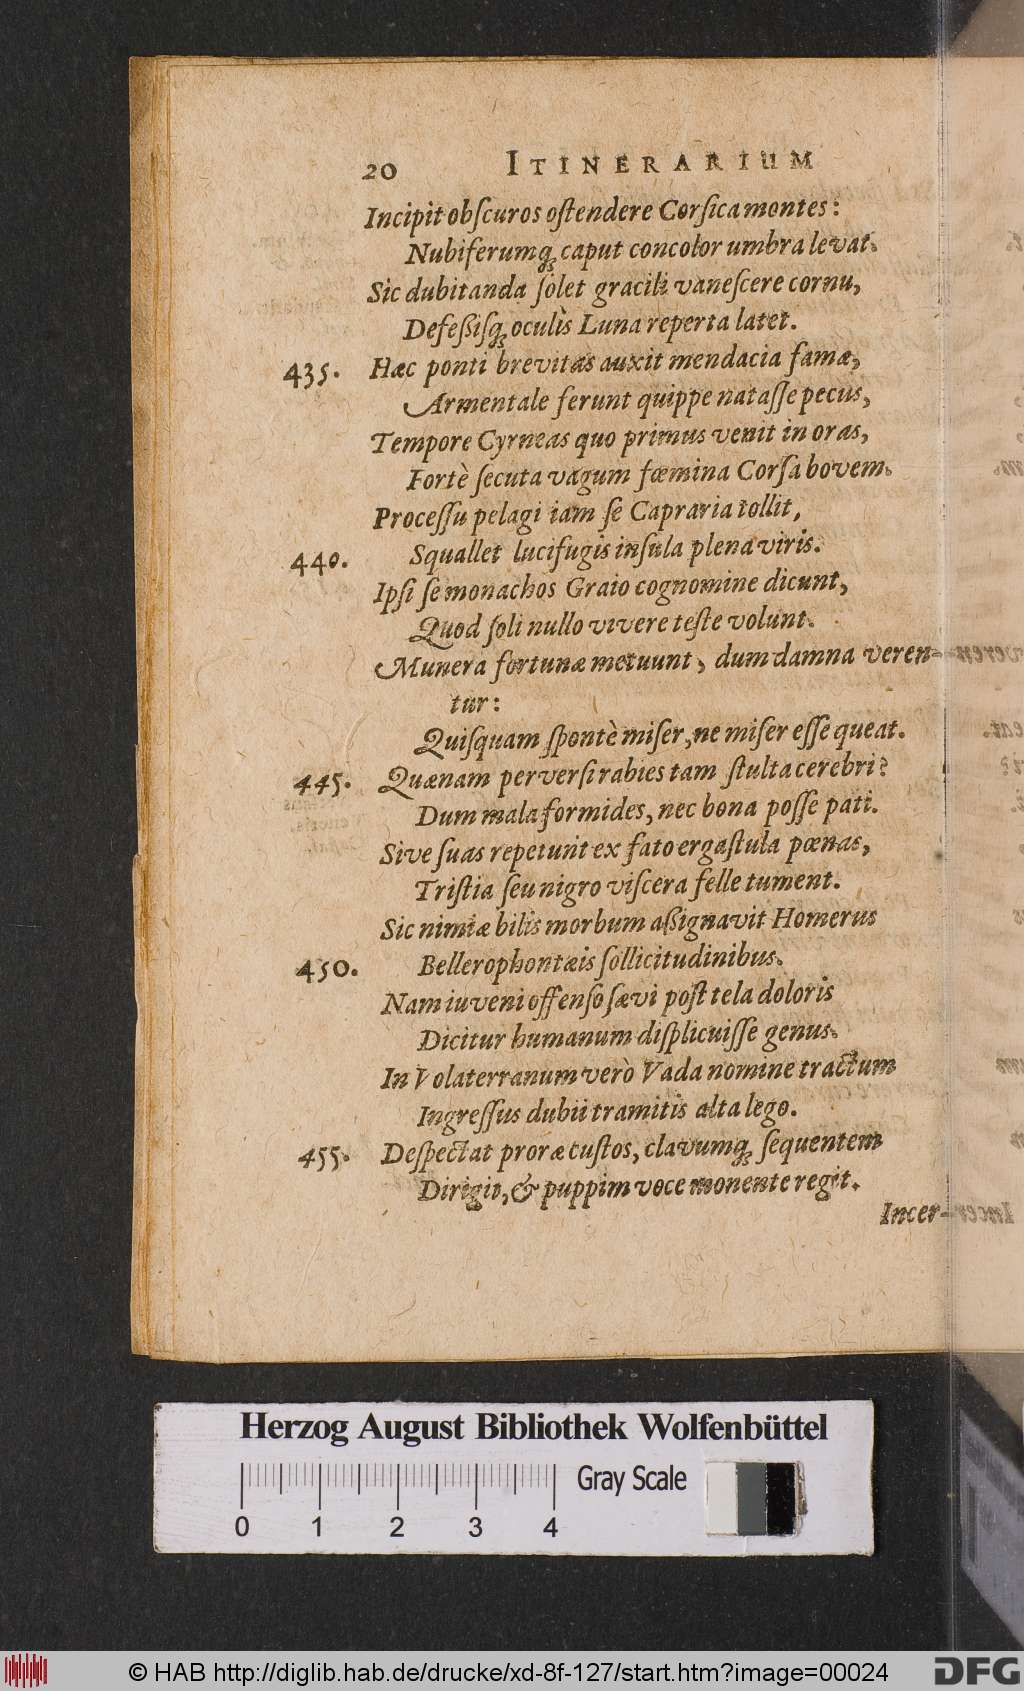 20 ITINERARIUM
Incipit obſcuros oſtendere Corſica montes:
Nubiferumq; caput concolor umbra levat.
Sic dubitanda ſolet gracili vaneſcere cornu,
Defeßiſq; oculìs Luna reperta latet.
435. Hæc ponti brevitas auxit mendacia famæ,
Armentale ferunt quippe nataſſe pecus,
Tempore Cyrneas quo primus venit in oras,
Fortè ſecuta vagum fœmina Corſa bovem.
Proceſſu pelagi iam ſe Capraria tollit,
440. Squallet lucifugis inſula plena viris.
Ipſi ſe monachos Graio cognomine dicunt,
Quod ſoli nullo vivere teſte volunt.
Munera fortunæ metuunt, dum damna veren-
tur:
Quiſquam ſpontè miſer, ne miſer eſſe queat.
445. Quænam perverſi rabies tam ſtulta cerebri?
Dum mala formides, nec bona poſſe pati.
Sive ſuas repetunt ex fato ergaſtula pœnas,
Triſtia ſeu nigro viſcera felle tument.
Sic nimiæ bilis morbum aßignavit Homerus
450. Bellerophontæis ſollicitudinibus.
Nam iuveni offenſo ſævi poſt tela doloris
Dicitur humanum diſplicuiſſe genus.
In Volaterranum verò Vada nomine tractum
Ingreſſus dubii tramitis alta lego.
455. Deſpectat proræ cuſtos, clavumq; ſequentem
Dirigit, & puppim voce monente regit.
Incer-
Herzog August Bibliothek Wolfenbüttel
Gray Scale
0 1 2 3 4
© HAB http://diglib.hab.de/drucke/xd-8f-127/start.htm?image=00024
DFG